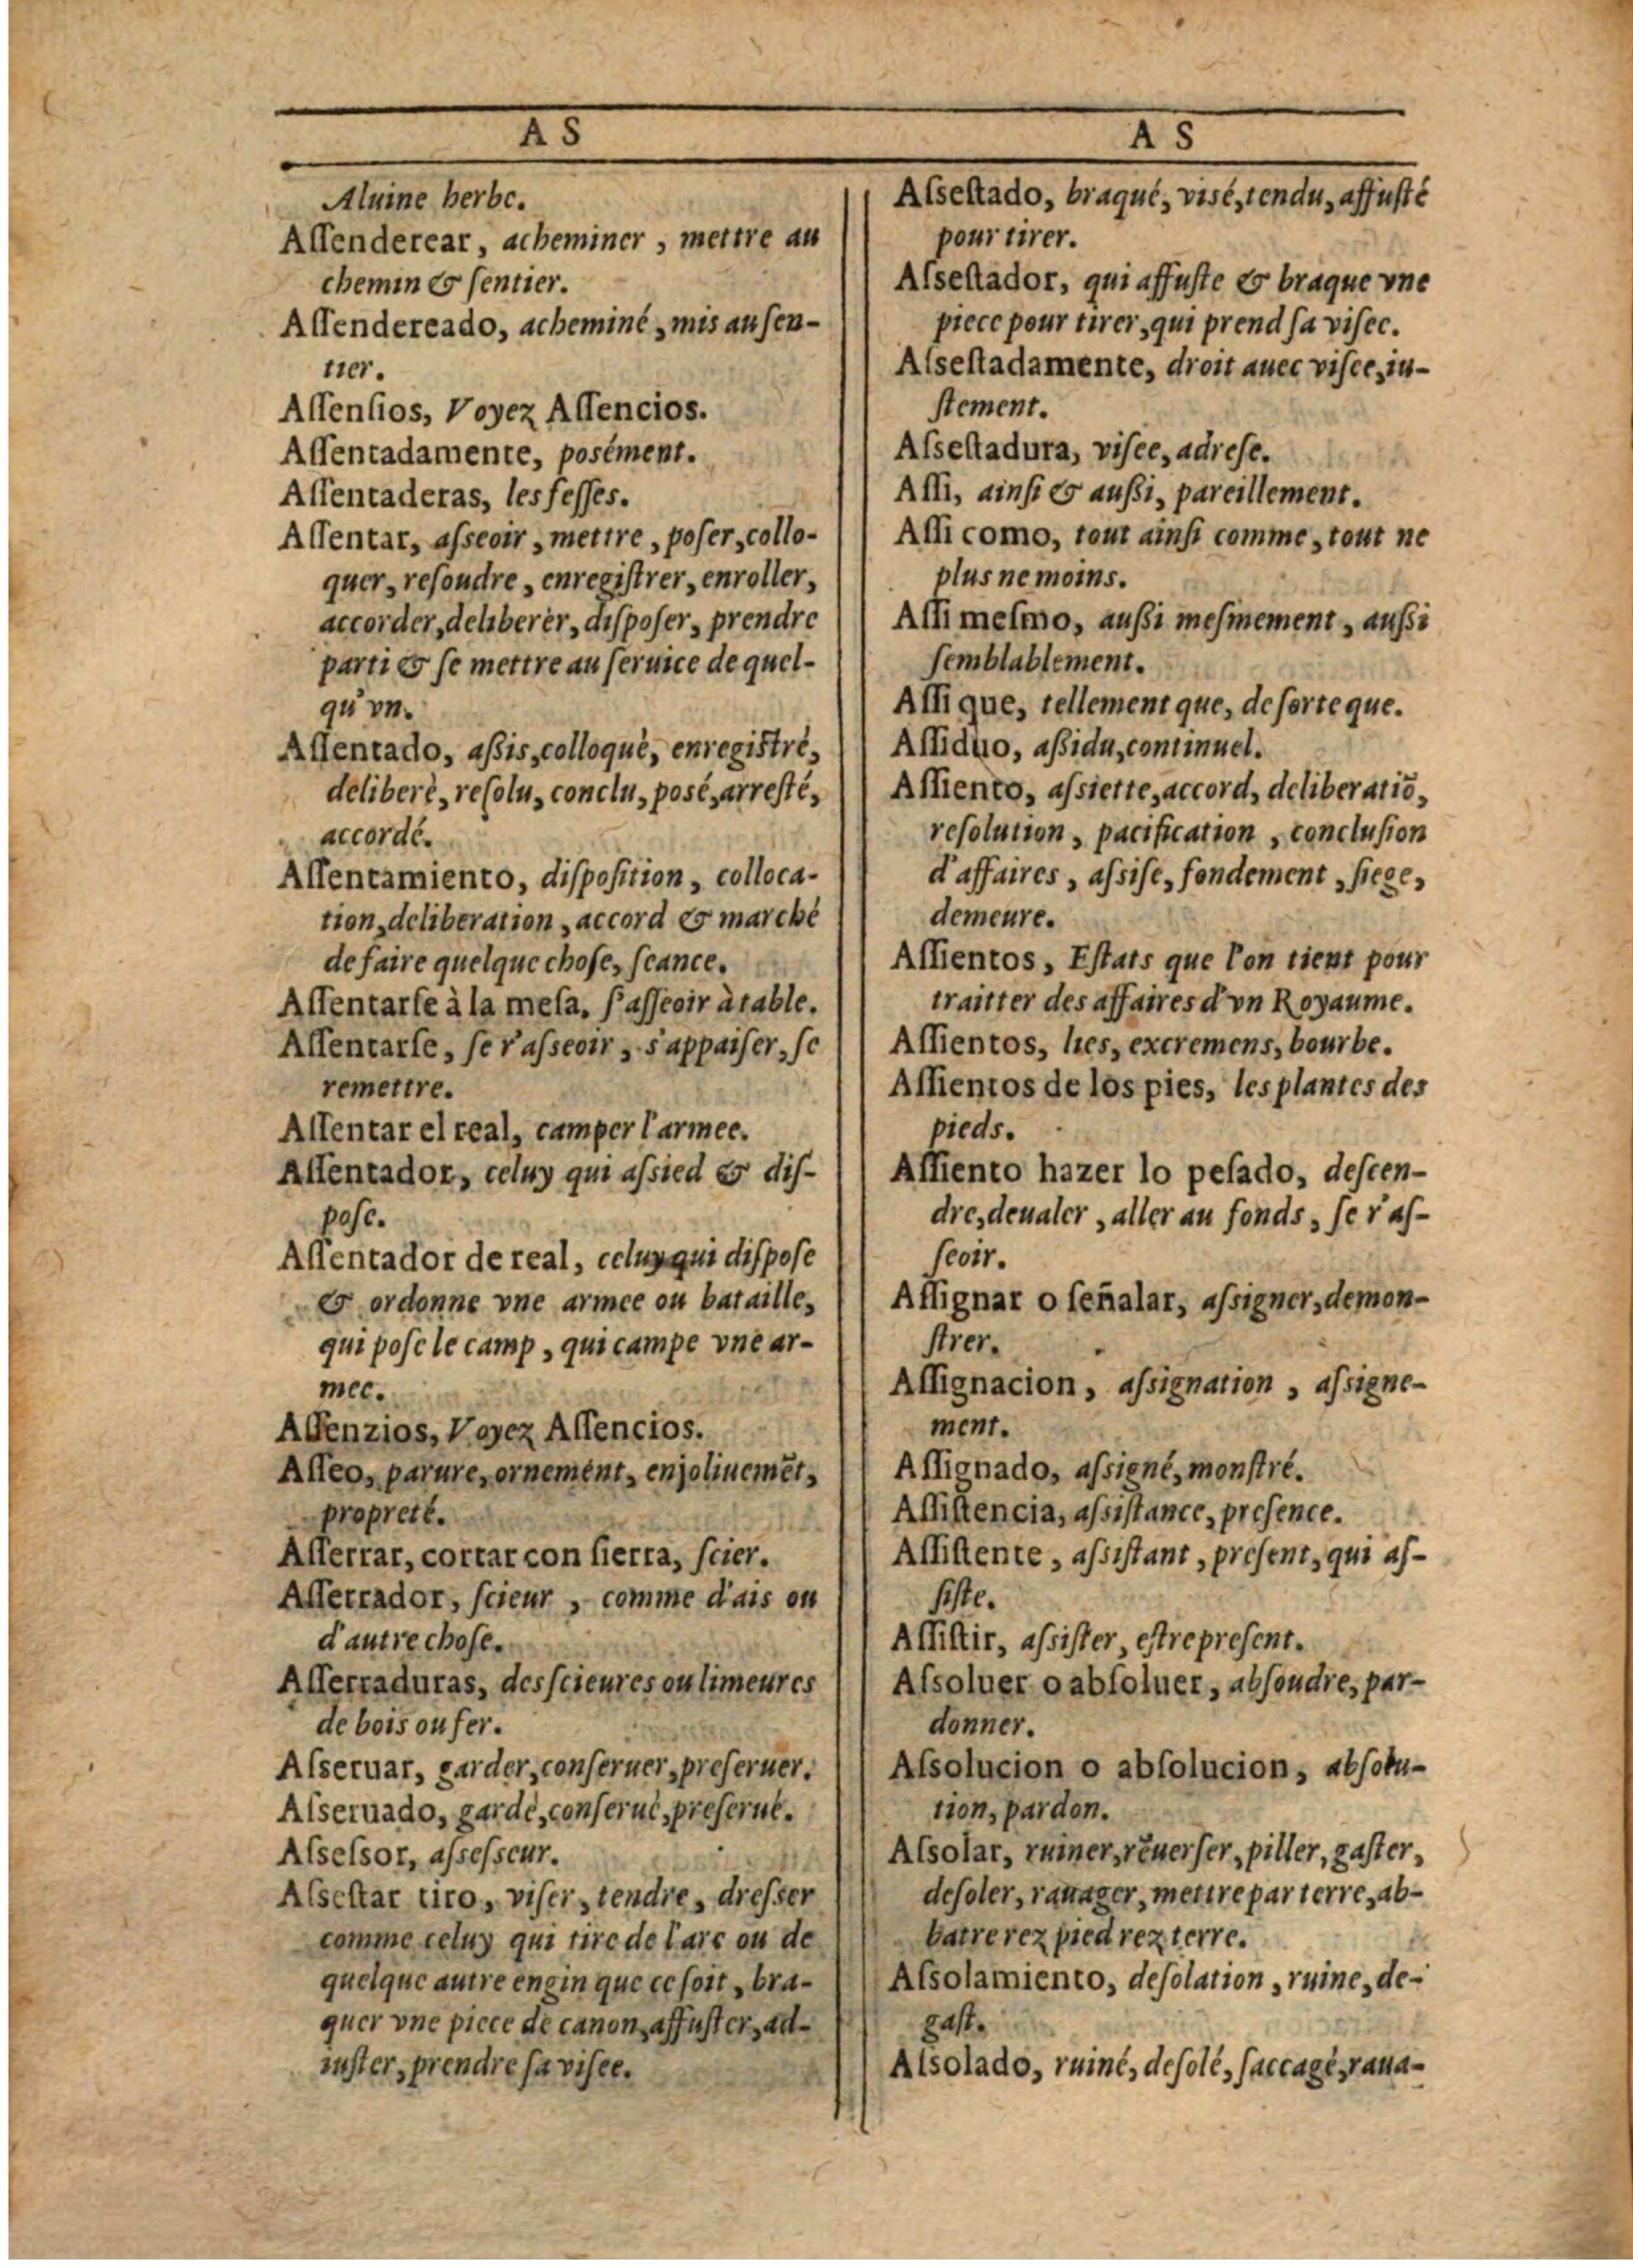 A S
Aluine herbe.
Aſſenderear, acheminer, mettre au
chemin & ſentier.
Aſſendereado, acheminé, mis au ſen-
tier.
Aſſenſios, Voyez Aſſencios.
Aſſentadamente, posément.
Aſſentaderas, les feſſes.
Aſſentar, aſseoir, mettre, poſer, collo-
quer, reſoudre, enregiſtrer, enroller,
accorder, deliberèr, diſpoſer, prendre
parti & ſe mettre au ſeruice de quel-
qu'vn.
Aſſentado, aßis, colloquè, enregiſtré,
deliberè, reſolu, conclu, posé, arreſté,
accordé.
Aſſentamiento, diſpoſition, colloca-
tion, deliberation, accord & marché
de faire quelque choſe, ſeance.
Aſſentarſe à la meſa, ſ'aſſeoir à table.
Aſſentarſe, ſe r'aſseoir, s'appaiſer, ſe
remettre.
Aſſentar el real, camper l'armee.
Aſſentador, celuy qui aſsied & diſ-
poſe.
Aſſentador de real, celuy qui diſpoſe
& ordonne vne armee ou bataille,
qui poſe le camp, qui campe vne ar-
mee.
Aſſenzios, Voyez Aſſencios.
Aſſeo, parure, ornement, enjoliuemẽt,
propreté.
Aſſerrar, cortar con ſierra, ſcier.
Aſſerrador, ſcieur, comme d'ais ou
d'autre choſe.
Aſſerraduras, des ſcieures ou limeures
de bois ou fer.
Aſseruar, garder, conſeruer, preſeruer.
Aſseruado, gardè, conſerué, preſerué.
Aſseſsor, aſseſseur.
Aſseſtar tiro, viſer, tendre, dreſser
comme celuy qui tire de l'arc ou de
quelque autre engin que ce ſoit, bra-
quer vne piece de canon, affuſter, ad-
iuſter, prendre ſa viſee.
A S
Aſseſtado, braqué, visé, tendu, affuſté
pour tirer.
Aſseſtador, qui affuſte & braque vne
piece pour tirer, qui prend ſa viſee.
Aſseſtadamente, droit auec viſee, iu-
ſtement.
Aſseſtadura, viſee, adreſe.
Aſſi, ainſi & außi, pareillement.
Aſſi como, tout ainſi comme, tout ne
plus ne moins.
Aſſi meſmo, außi meſmement, außi
ſemblablement.
Aſſi que, tellement que, de ſorte que.
Aſſiduo, aßidu, continuel.
Aſſiento, aſsiette, accord, deliberatiõ,
reſolution, pacification, concluſion
d'affaires, aſsiſe, fondement, ſiege,
demeure.
Aſſientos, Eſtats que l'on tient pour
traitter des affaires d'vn Royaume.
Aſſientos, lies, excremens, bourbe.
Aſſientos de los pies, les plantes des
pieds.
Aſſiento hazer lo peſado, deſcen-
dre, deualer, aller au fonds, ſe r'aſ-
ſeoir.
Aſſignar o ſeñalar, aſsigner, demon-
ſtrer.
Aſſignacion, aſsignation, aſsigne-
ment.
Aſſignado, aſsigné, monſtré.
Aſſiſtencia, aſsiſtance, preſence.
Aſſiſtente, aſsiſtant, preſent, qui aſ-
ſiſte.
Aſſiſtir, aſsiſter, eſtre preſent.
Aſsoluer o abſoluer, abſoudre, par-
donner.
Aſsolucion o abſolucion, abſolu-
tion, pardon.
Aſsolar, ruiner, rẽuerſer, piller, gaſter,
deſoler, rauager, mettre par terre, ab-
batre rez pied rez terre.
Aſsolamiento, deſolation, ruine, de-
gaſt.
Aſsolado, ruiné, deſolé, ſaccagè, raua-